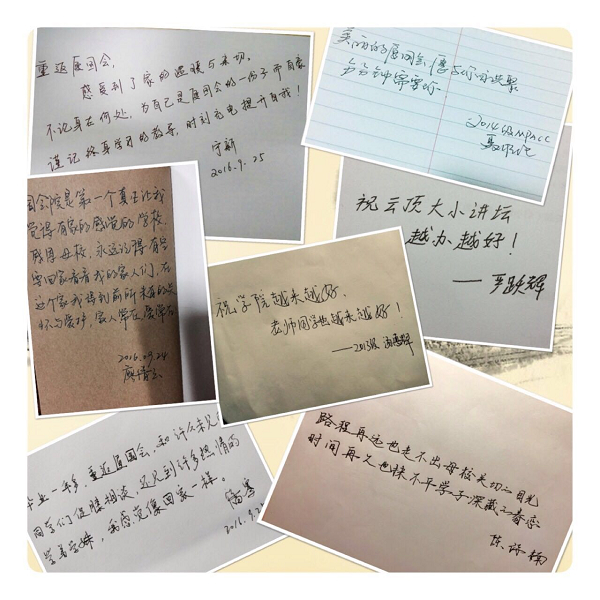 重返厦国会，
感受到了家的温暖与亲切。
不论身在何处，为自己是厦国会的一份子而自豪
谨记终身学习的教导，时刻充电提升自我！
2016.9.25
美丽的厦国会，厦
分分钟
2014级MPACC
国会院是第一个真正让我
觉得有家的感觉的学校，
感恩母校，永远记得有空
要回家看看我的家人们，在
这个家我得到前所未有的关
怀与爱护，家人常在
2016.09.24
祝云顶大小讲坛
越办越好！
——严跃辉
祝学院越来越好，
老师同学也越来越好！
——2013级
毕业一年多，重返厦国会，和许久未见
同学们促膝相谈，还见到许多热情的
学弟学妹，我感觉像回家一样。
2016.9.2
路程再远也走不出母校关切的目光
时间再久也抹不平学子深藏的眷恋
陈